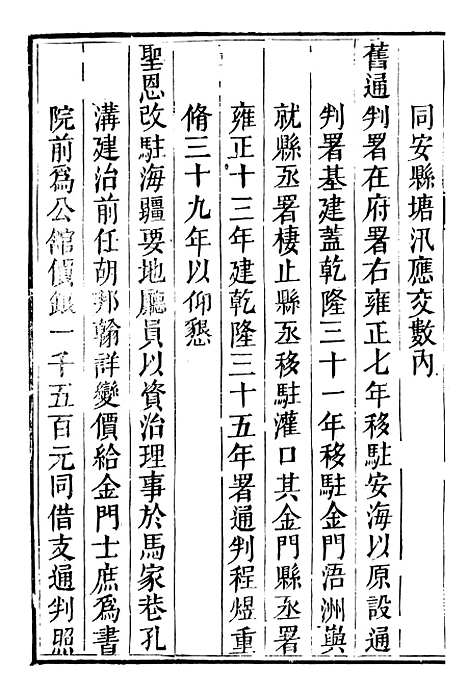 同安縣塘汛應交數內
舊通判署在府署右雍正七年移駐安海以原設通
判署基建葢乾隆三十一年移駐金門浯洲與
就縣丞署棲止縣丞移駐灌口其金門縣丞署
雍正十三年建乾隆三十五年署通判程煜重
脩三十九年以仰懇
聖恩改駐海疆要地廳員以資治理事於馬家巷孔
溝建治前任胡邦翰詳變價給金門士庶爲書
院前爲公館價銀一千五百元同借支通判照